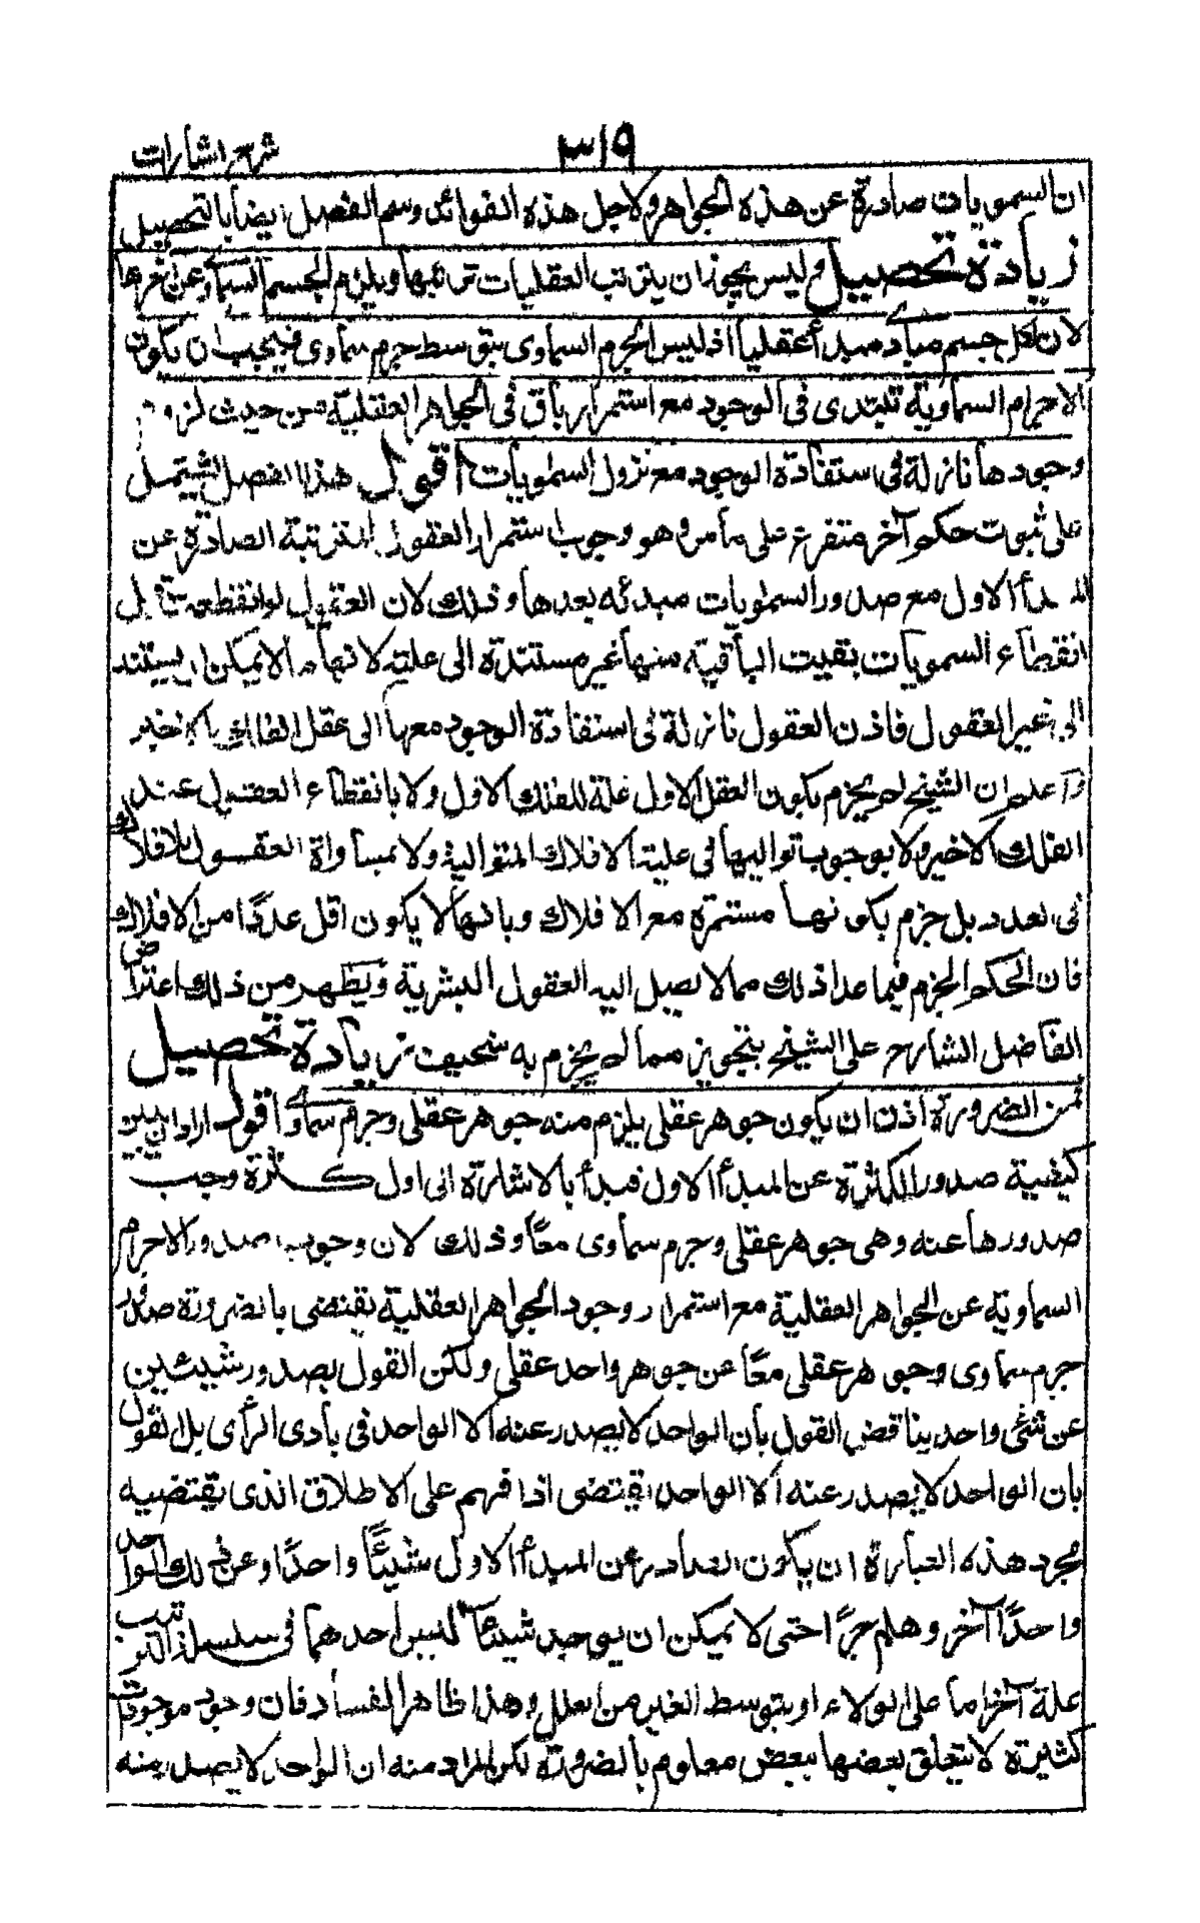 ٣١٩
شرح اشارات
ان السمويات صادرة عن هذه الجواهر ولاجل هذه الفوائد وسم الفصل ايضا بالتحصيل
زيادة تحصيل وليس يجوز ان يترتب العقليات ترتبها ويلزم الجسم السماوى عن آخرها
لان لكل جسم سماوى مبدأ عقليا اذ ليس الجرم السماوى بتوسط جرم سماوى فيجب ان يكون
الاجرام السماوية تبتدى فى الوجود مع استمرار باق فى الجواهر العقلية من حيث لزوم
وجودها نازلة فى استفادة الوجود مع نزول السمويات اقول هذا الفصل يشتمل
على ثبوت حكم آخر متفرع على ما مر وهو وجوب استمرار العقول المترتبة الصادرة عن
المبدأ الاول مع صدور السمويات مبدئه بعدها وذلك لان العقول لو انقطعت قبل
انقطاع السمويات بقيت الباقية منها غير مستندة الى علته لانها ما لا يمكن ان يستند
الى غير العقول فاذن العقول نازلة فى استفادة الوجود معها الى عقل الفلك الاخير
واعلم ان الشيخ لم يجزم بكون العقل الاول علة للفلك الاول ولا بانقطاع العقول عند
الفلك الاخير ولا بوجوب تواليها فى علية الافلاك المتوالية ولا بمساواة العقول للافلاك
فى العدد بل جزم بكونها مستمرة مع الافلاك وبانها لا يكون اقل عددا من الافلاك
فان الحكم الجزم فيما عدا ذلك مما لا يصل اليه العقول البشرية ويظهر من ذلك اعتراض
الفاضل الشارح على الشيخ بتجويز ما لم يجزم به سخيف زيادة تحصيل
فمن الضرورة اذن ان يكون جوهر عقلى يلزم منه جوهر عقلى وجرم سماوى اقول اراد ان يبين
كيفية صدور الكثرة عن المبدأ الاول فبدأ بالاشارة الى اول كثرة وجب
صدورها عنه وهى جوهر عقلى وجرم سماوى معًا وذلك لان وجوب صدور الاجرام
السماوية عن الجواهر العقلية مع استمرار وجود الجواهر العقلية يقتضى بالضرورة صدور
جرم سماوى وجوهر عقلى معًا عن جوهر واحد عقلى ولكن القول بصدور شيئين
عن شئ واحد يناقض القول بان الواحد لا يصدر عنه الا الواحد فى بادى الرأى بل القول
بان الواحد لا يصدر عنه الا الواحد يقتضى اذا فهم على الاطلاق الذى يقتضيه
مجرد هذه العبارة ان يكون الصادر عن المبدأ الاول شيئًا واحدًا وعن ذلك الواحد
واحدًا آخر وهلم جرًا حتى لا يمكن ان يوجد شيئان ليس احدهما فى سلسلة الترتيب
علة آخر اما على الولاء او بتوسط الغير من العلل وهذا ظاهر الفساد فان وجود موجودات
كثيرة لا يتعلق بعضها ببعض معلوم بالضرورة لكن المراد منه ان الواحد لا يصدر منه